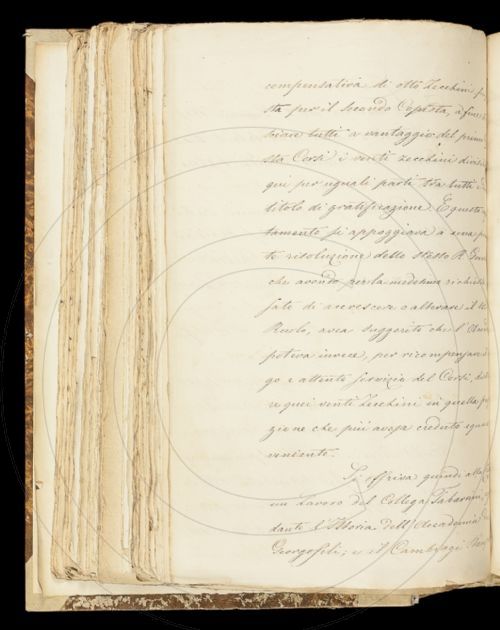 compensativa di otto Zecchini
sta per il secondo Copista, a
tutti a vantaggio del primo
sta Corsi i venti zecchini
per uguali parti tra tutti
titolo di gratificazione. E questo
tamento si appoggiava a una
te risoluzione dello stesso R.
che avendo per la medesima
fate di accrescere o alterare il
Ruolo, avea suggerito che l'
poteva invece, per ricompensare
go e attento servizio del Corsi,
quei venti Zecchini in quella
zione che più avesse creduto
veniente.
Si offriva quindi alla
un Lavoro del Collega Tabarrini,
dante l'Istoria dell'Accademia
Georgofili; e il Cambiagi